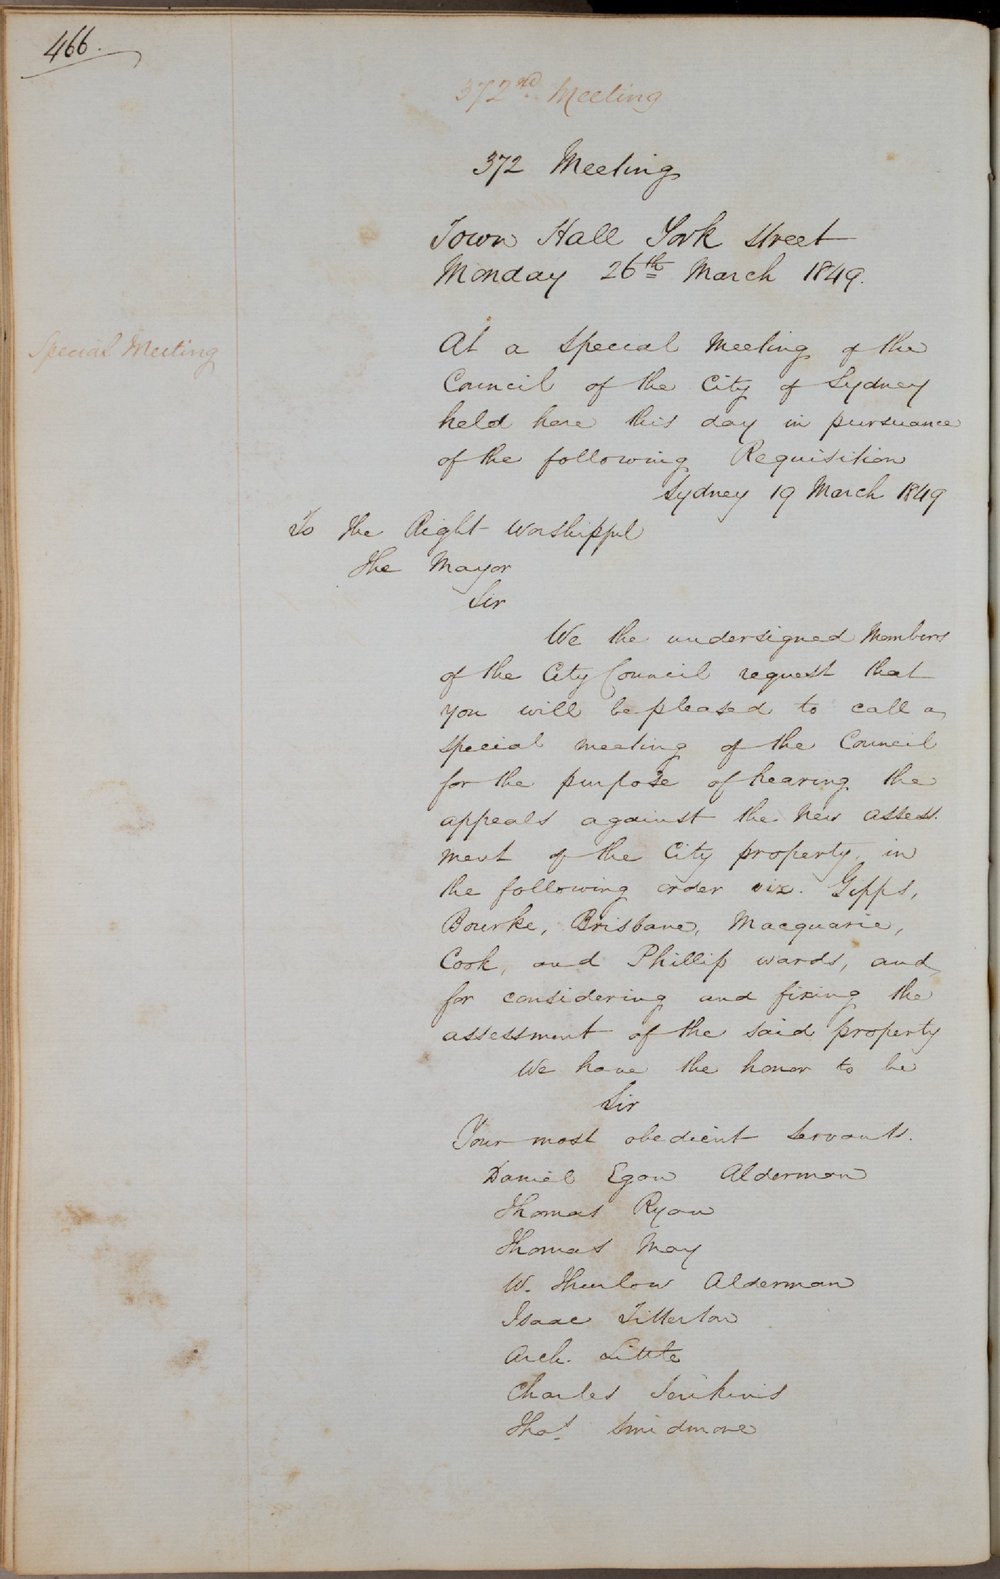 466.
372nd Meeting
372 Meeting
Town Hall York Street
Monday 26th March 1849.
Special Meeting
At a Special Meeting of the
Council of the City of Sydney
held here this day in pursuance
of the following Requisition
Sydney 19 March 1849
To The Right Worshipful
The Mayor
Sir
We the undersigned Members
of the City Council request that
you will be pleased to call a
special meeting of the Council
for the purpose of hearing the
appeals against the New Assess
ment of the City property, in
the following order viz. Gipps,
Bourke, Brisbane, Macquarie,
Cook, and Phillip wards, and
for considering and fixing the
assessment of the said property
We have the honor to be
Sir
Your most obedient Servants.
Daniel Egan Alderman
Thomas Ryan
Thomas May
W. Thurlow Alderman
Isaac Titterton
Arch. Little
Charles Jenkins
Thos. Smidmore